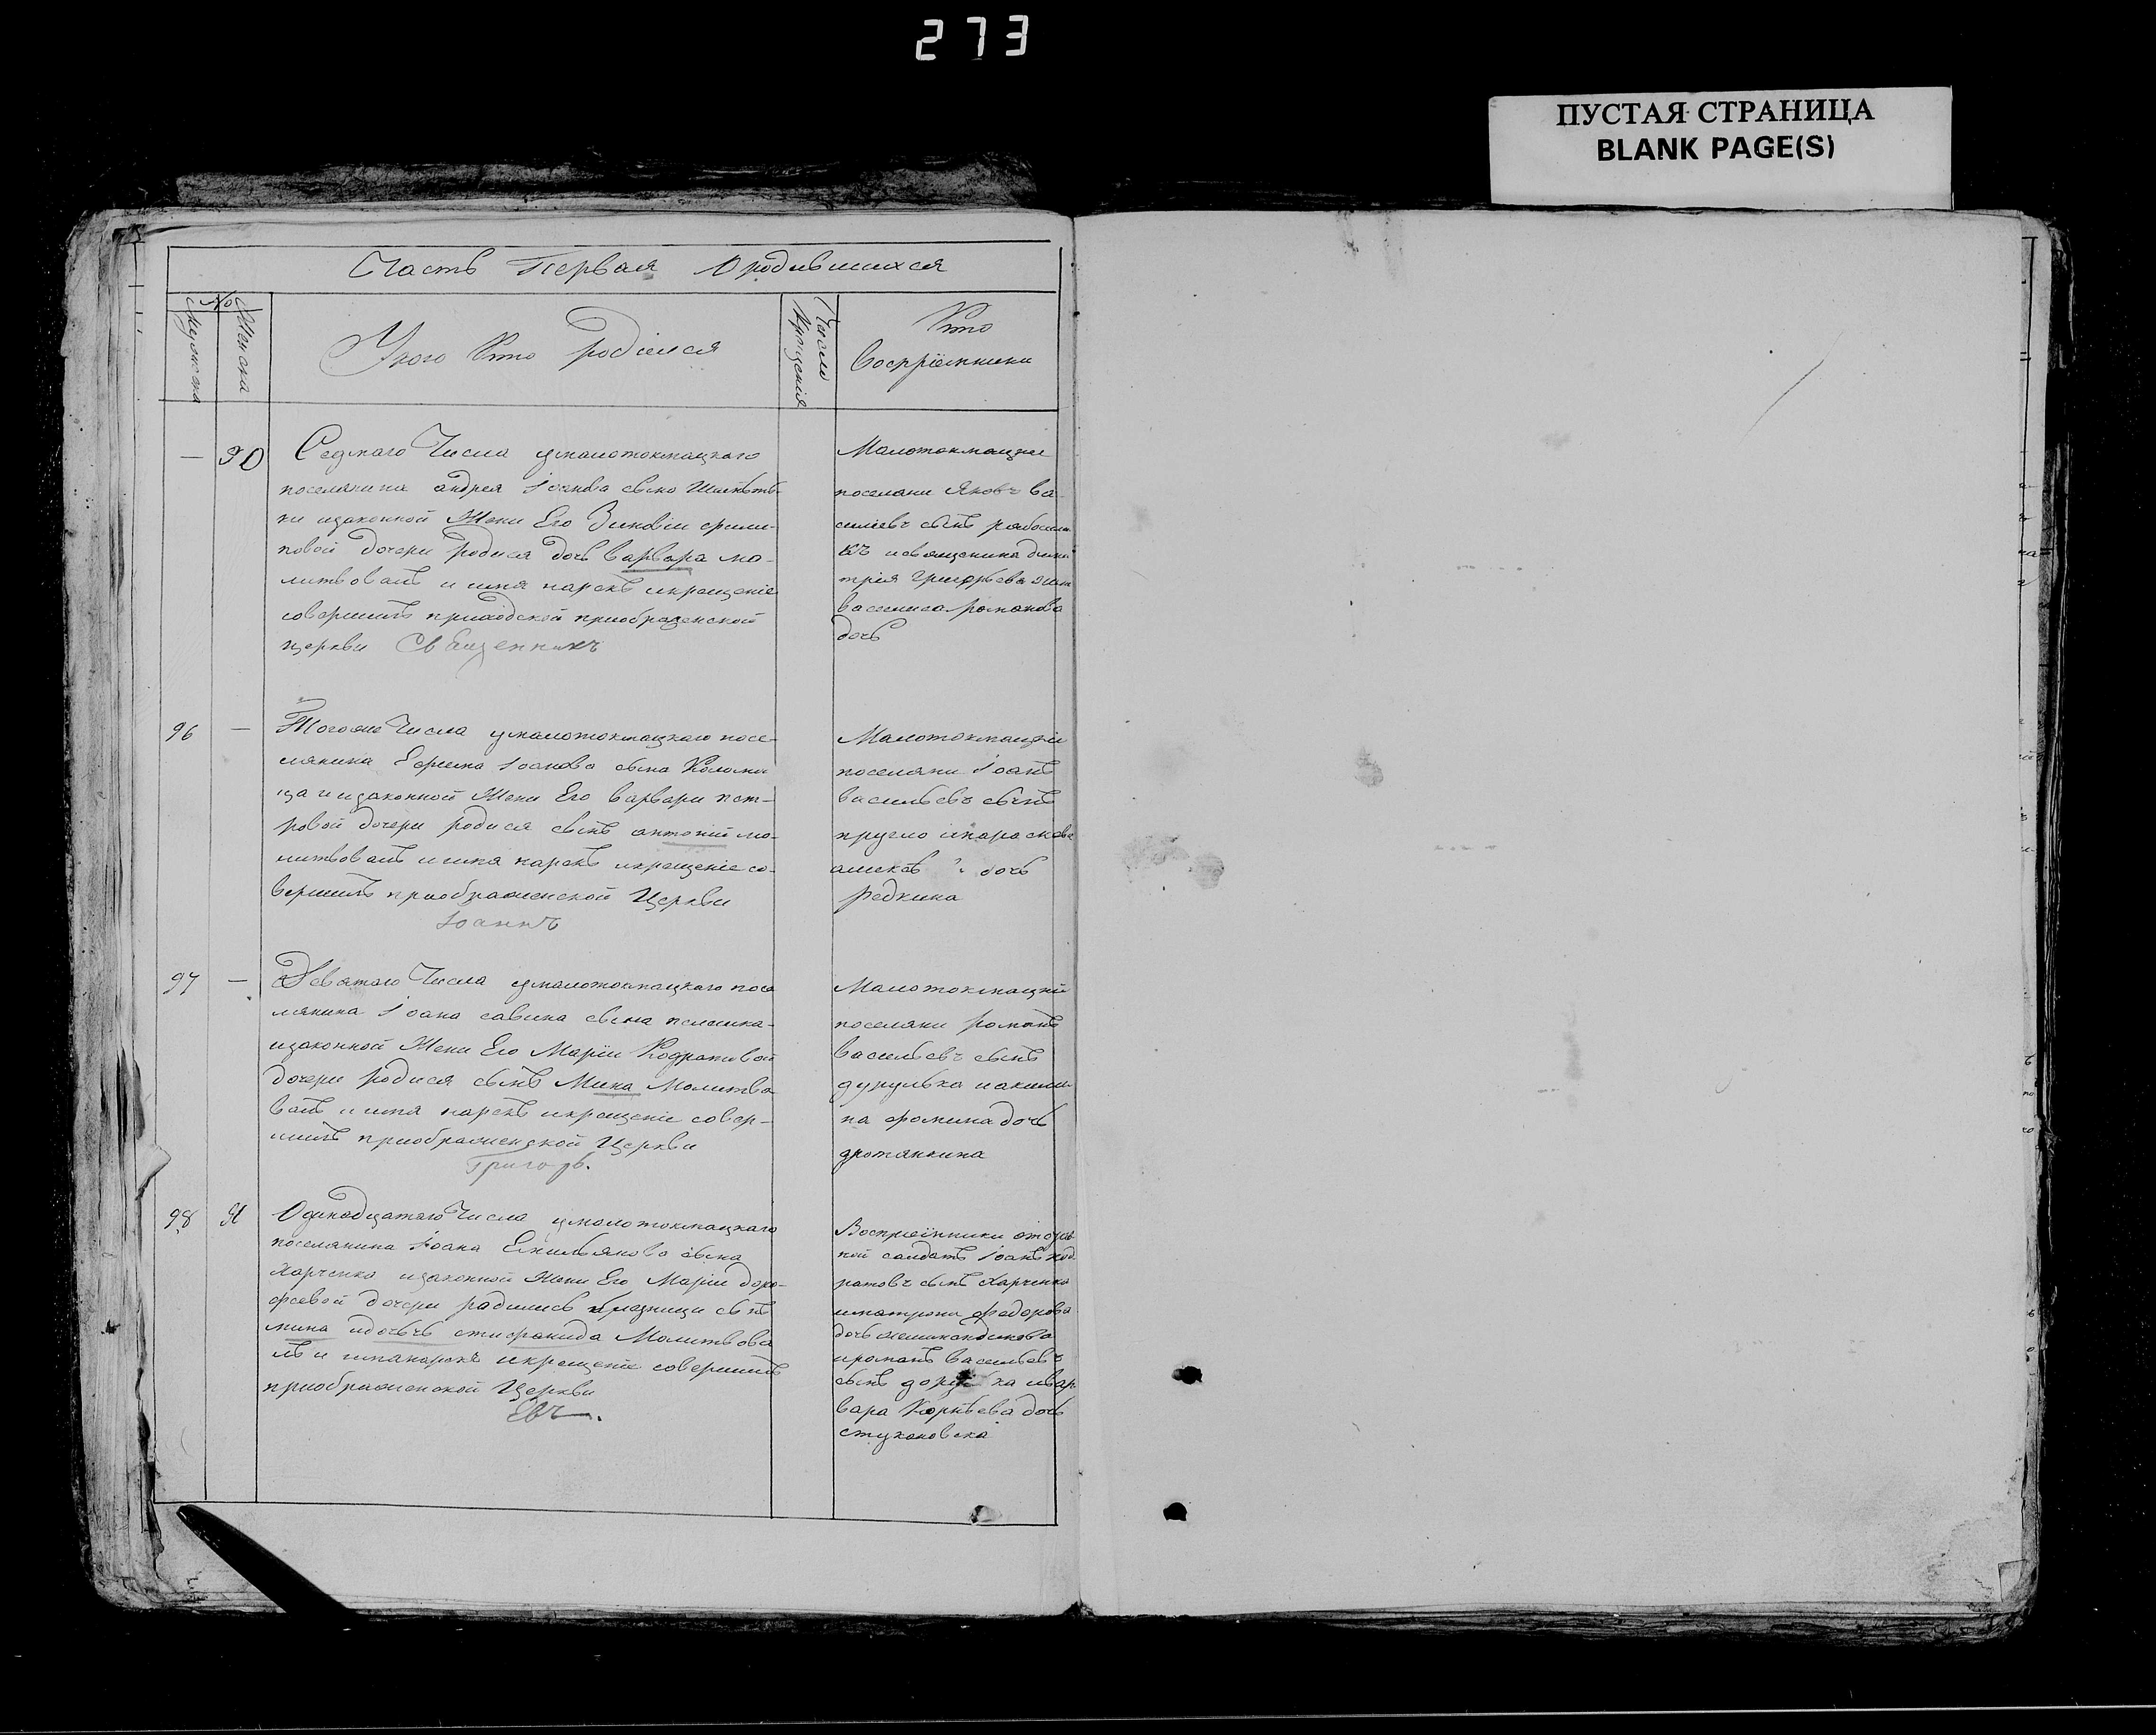 273
ПУСТАЯ СТРАНИЦА
BLANK PAGE(S)
Часть Первая О родившихся
№
Мужеска
Женска
У кого Кто родился
Число Крещенія
Кто
воспріемники
— 90
Седмаго Числа умалотокмацкаго
поселянина андрея Іоанова сына
ки изаконной Жени Его Зиновіи
повой дочери родися дочь варвара мо-
литвовалъ и имя нарекъ икрещеніе
совершилъ приходской приображенской
церкви Священникъ
Малотокмацкіе
поселяни Яковъ ва-
силіевъ сынъ
къ исвященика дими
трія григорьева жена
василиса романова
дочь
96 —
Тогоже Числа умалотокмацкаго посе-
лянина Ефима Іоанова сына Коломи
ца и изаконной Жени Его варвари пет-
ровой дочери родися сынъ антоній мо-
литвовалъ и имя нарекъ икрещеніе со-
вершилъ приображенской Церкви
Іоаннъ
Малотокмацкіи
поселяни Іоанъ
васильевъ сынъ
кругло ипараскева
дочь
редкина
97 —
Девятаго Числа умалотокмацкаго посе
лянина Іоана савина сына
изаконной Жени Его Маріи Кодратовой
дочери родися сынъ Мина Молитво
валъ и имя нарекъ икрещеніе совер-
шилъ приображенской Церкви
Григорь.
Малотокмацкій
поселяни романъ
васильевъ сынъ
дурулька иакили-
на фомина дочь
дротянкина
98 91
Одинадцатаго Числа умалотокмацкаго
поселянина Іоана Емильянова сына
Харченко изаконной Жени Его Маріи доро-
феевой дочери радились близници сынъ
мина идочъ стифанида Молитвова
лъ и имянарекъ икрещеніе совершилъ
приображенской Церкви
Евъ.
Воспріемники отстав
ной салдатъ Іоанъ код
ратовъ сынъ Харченко
иматрона федорова
дочь
ироманъ васильевъ
сынъ ивар
вара Корнѣева дочь
стукановска